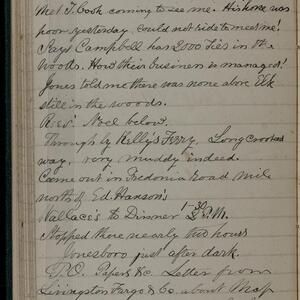 Met T. Cook coming to see me. His horse was
poor yesterday could not ride to meet me!
Says Campbell has 2500 ties in the
woods. How their business is managed!
Jones told me there was none above Elk
still in the woods.
Recd. below.
Through by Kelly's Ferry, Long crooked
way, very muddy indeed.
Came out in Fredonia road mile
north of Ed. Hanson's
Wallace's to Dinner 1-30 P.M.
Stopped there nearly two hours
Jonesboro just after dark.
P.O. Papers &c. Letter from
Livingston Fargo & Co. about Map